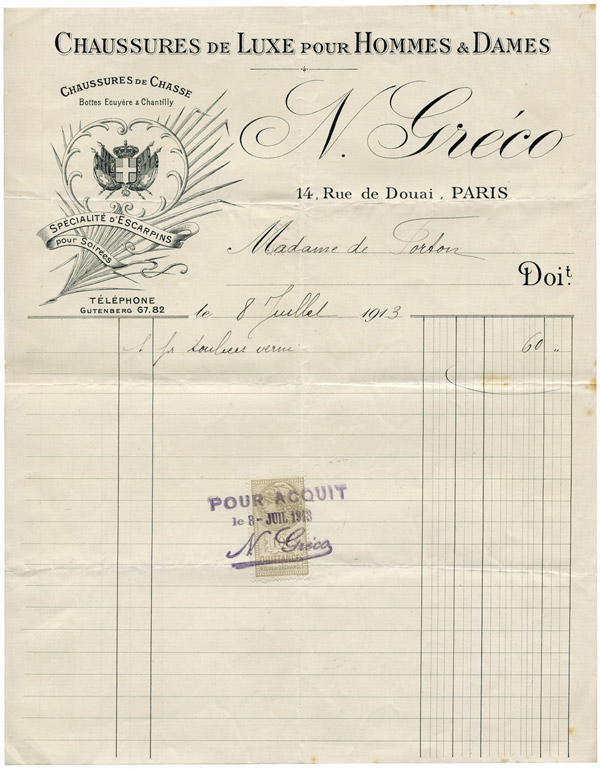 CHAUSSURES DE LUXE POUR HOMMES & DAMES
CHAUSSURES DE CHASSE
Bottes Ecuyère & Chantilly
N. Gréco
14, Rue de Douai, PARIS
SPÉCIALITÉ D'ESCARPINS
pour Soirées
Madame de Forton
Doit.
TÉLÉPHONE
GUTENBERG 67.82
le 8 Juillet 1913
1 pr souliers verni 60 "
POUR ACQUIT
le 8 - JUIL 1913
N. Gréco
QUITTANCES